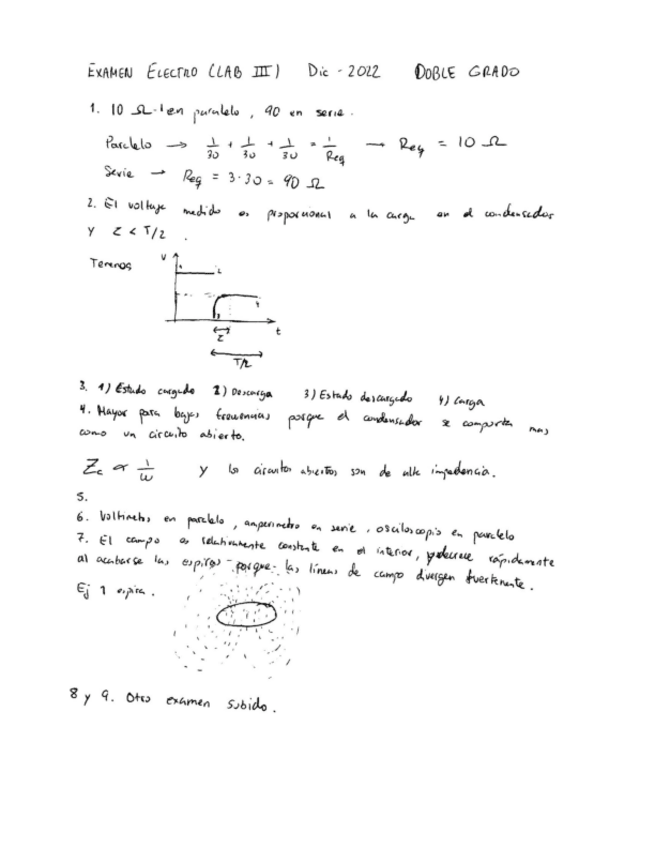 EXAMEN ELECTRO (LAB III) Dic - 2022 DOBLE GRADO
1. 10 Ω en paralelo, 90 en serie.
Paralelo → 1/30 + 1/30 + 1/30 = 1/Req → Req = 10 Ω
Serie → Req = 3·30 = 90 Ω
2. El voltaje medido es proporcional a la carga en el condensador
y τ < T/2.
Tenemos
V
t
τ
T/2
3. 1) Estado cargado 2) Descarga 3) Estado descargado 4) Carga
4. Mayor para bajas frecuencias porque el condensador se comporta mas
como un circuito abierto.
Zc ∝ 1/ω y los circuitos abiertos son de alta impedancia.
5.
6. Voltimetro en paralelo, amperimetro en serie, osciloscopio en paralelo
7. El campo es relativamente constante en el interior, y decrece rápidamente
al acabarse las espiras porque las líneas de campo divergen fuertemente.
Ej 1 espira.
8 y 9. Otro examen subido.